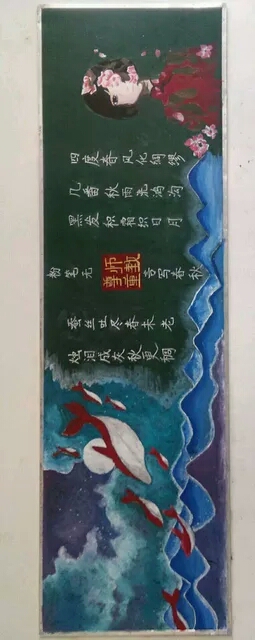 四度春风化绸缪
几番秋雨洗鸿沟
黑发积霜织日月
粉笔无言写春秋
尊师重教
蚕丝吐尽春未老
烛泪成灰秋更稠